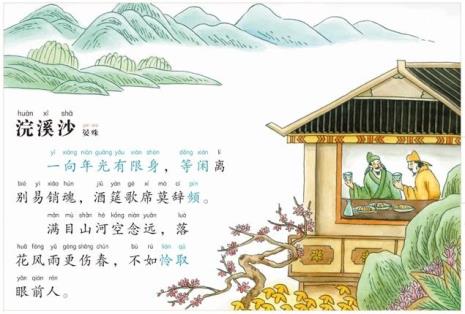 huàn xī shā
浣溪沙 晏殊
yì xiàng nián guāng yǒu xiàn shēn děng xián lí
一向年光有限身，等闲离
bié yì xiāo hún jiǔ yán gē xí mò cí pín
别易销魂，酒筵歌席莫辞频。
mǎn mù shān hé kōng niàn yuǎn luò
满目山河空念远，落
huā fēng yǔ gèng shāng chūn bù rú lián qǔ
花风雨更伤春，不如怜取
yǎn qián rén
眼前人。